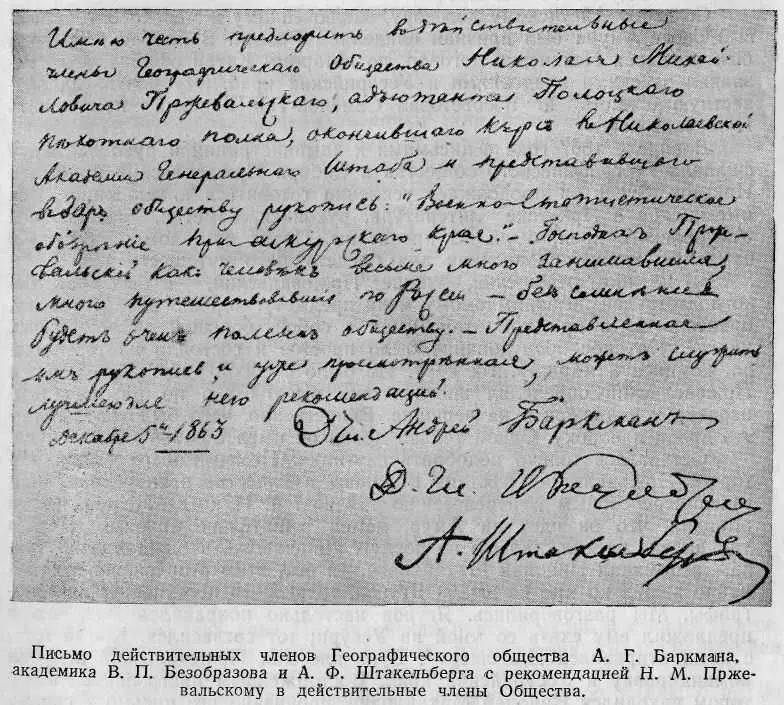 Имѣю честь предложить въ дѣйствительные
члены Географическаго Общества Николая Михай-
ловича Пржевальскаго, адъютанта Полоцкаго
пѣхотнаго полка, окончившаго курсъ въ Николаевской
Академіи Генеральнаго Штаба и представившаго
въ даръ обществу рукопись: "Военно-Статистическое
обозрѣніе Приамурскаго края." – Господинъ Прже-
вальскій какъ человѣкъ весьма много занимавшійся,
много путешествовавшій по Россіи – безъ сомнѣнія
будетъ очень полезенъ обществу. – Представленная
имъ рукопись и уже просмотрѣнная, можетъ служить
для него рекомендаціей
Декабря 5го 1863 Д. Чл. Андрей Баркманъ
Д. Чл.
А. Штакельбергъ
Письмо действительных членов Географического общества А. Г. Баркмана,
академика В. П. Безобразова и А. Ф. Штакельберга с рекомендацией Н. М. Прже-
вальскому в действительные члены Общества.